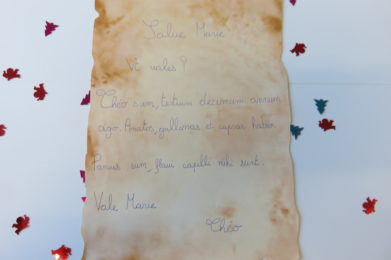 Salve Marie
Ut vales ?
Théo sum, tertium decimum annum
ago. Anates, gallinas et capras habeo.
Parvus sum, flavi capilli mihi sunt.
Vale Marie
Théo